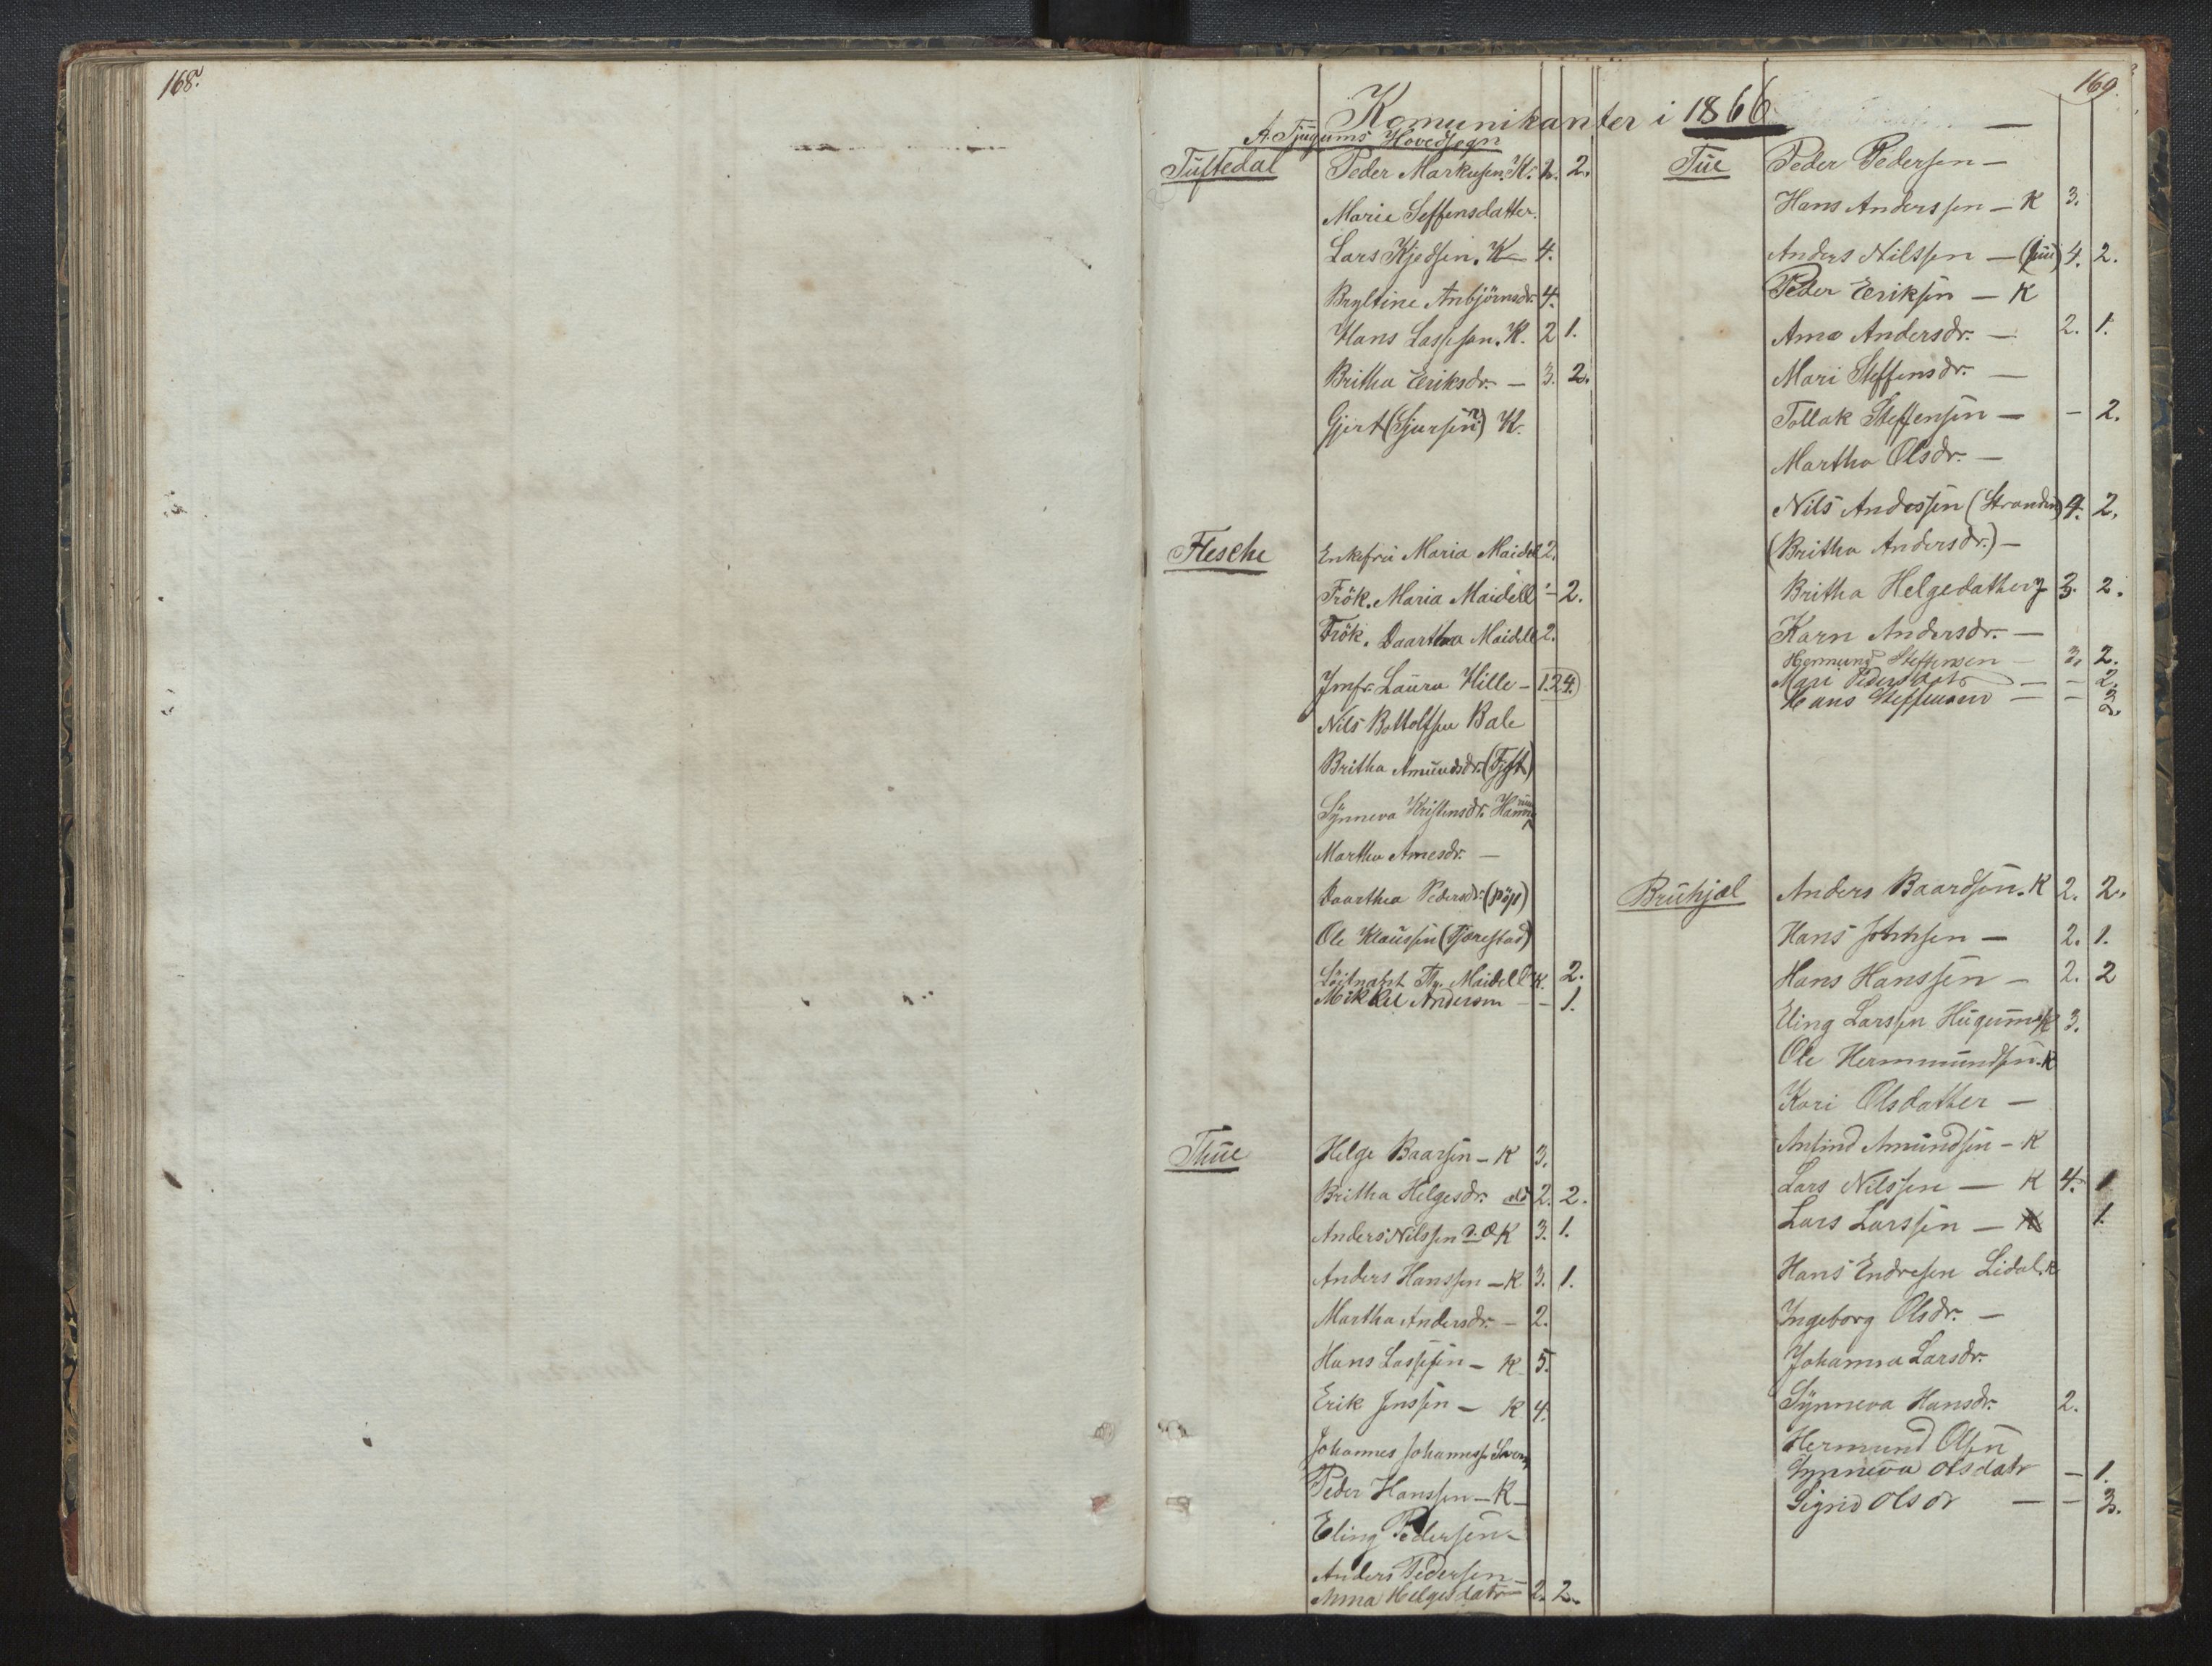 168.
169.
Komunikanter i 1866
A. Tjugums Hovedsogn
Tuftedal
Peder Markusen. K. 2. 2.
Marie Seffensdatter.
Lars Kjedsen. K 4.
Bryltine Anbjörnsdr. 4.
Hans Lassesen. K. 2 1.
Britha Eriksdr. — 3. 2.
Gjert (Sjursen) K.
Flesche
Enkefru Maria Maidell 2.
Frök. Maria Maidell - 2.
Frök. Daarthea Maidell 2.
Jmfr. Laura Hille — 1. 24.
Nils Bottolfsen Bale
Britha Amundsdr. (Tjft)
Synneva Kristensdr. Hamre
Martha Arnesdr. —
Daarthea Pedersdr. (pöp)
Ole Klaussen (Tjærestad)
Löitnant Maidell K. 2.
Mikkel Andersen — - 1.
Thue
Helge Baarsen — K 3.
Britha Helgesdr. do 2. 2.
Anders Nilssen K 3. 1.
Anders Hanssen — K 3. 1.
Martha Andersdr. — 2.
Hans Lassesen — K 5.
Erik Jenssen — K 4.
Johannes Johanness.
Peder Hanssen — K —
Eling Pedersen —
Anders Pedersen —
Anna Helgesdatr — 2. 2.
Tue
Peder Pedersen —
Hans Anderssen — K 3.
Anders Nilssen — (Tue) 4. 2.
Peder Eriksen — K
Anna Andersdr. — 2. 1.
Mari Steffensdr. —
Tollak Steffensen — - 2.
Martha Olsdr. —
Nils Andersen (Stranden) 4. 2.
(Britha Andersdr.) —
Britha Helgedatter 3. 2.
Karn Andersdr. —
Hermund Steffensen — 3. 2.
Mari Pedersdatr — - 2.
Hans Steffensen — - 2.
Bruhjæl
Anders Baardsen. K 2. 2.
Hans Johnsen — 2. 1.
Hans Hanssen — 2. 2
Eling Larssen Hugum K 3.
Ole Hermmundsen. K
Kari Olsdatter —
Anfind Amundsen — K
Lars Nilssen — K 4. 1
Lars Larssen — K 1.
Hans Endresen Lidal. K
Ingeborg Olsdr. —
Johanna Larsdr.
Synneva Hansdr. 2.
Hermund Olsen
Synneva Olsdatr — 1.
Sigrid Olsdr — - 3.